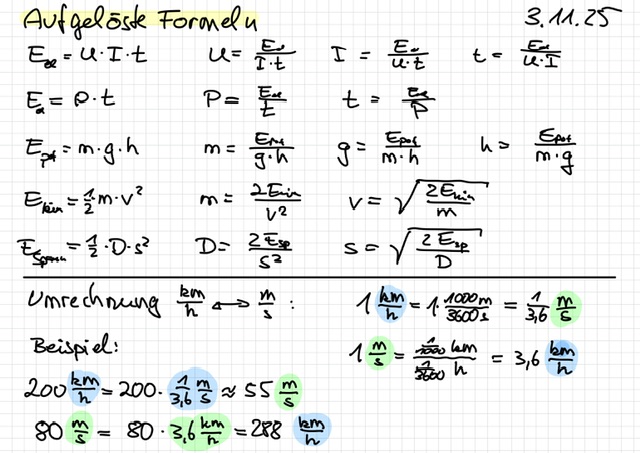 Aufgelöste Formeln 3.11.25
E_el = U · I · t U = E_el / (I · t) I = E_el / (U · t) t = E_el / (U · I)
E_el = P · t P = E_el / t t = E_el / P
E_pot = m · g · h m = E_pot / (g · h) g = E_pot / (m · h) h = E_pot / (m · g)
E_kin = 1/2 m · v² m = 2E_kin / v² v = √(2E_kin / m)
E_Spann = 1/2 · D · s² D = 2E_sp / s² s = √(2E_sp / D)
Umrechnung km/h ↔ m/s : 1 km/h = 1 · 1000m / 3600s = 1/3,6 m/s
Beispiel: 1 m/s = (1/1000 km) / (1/3600 h) = 3,6 km/h
200 km/h = 200 · 1/3,6 m/s ≈ 55 m/s
80 m/s = 80 · 3,6 km/h = 288 km/h